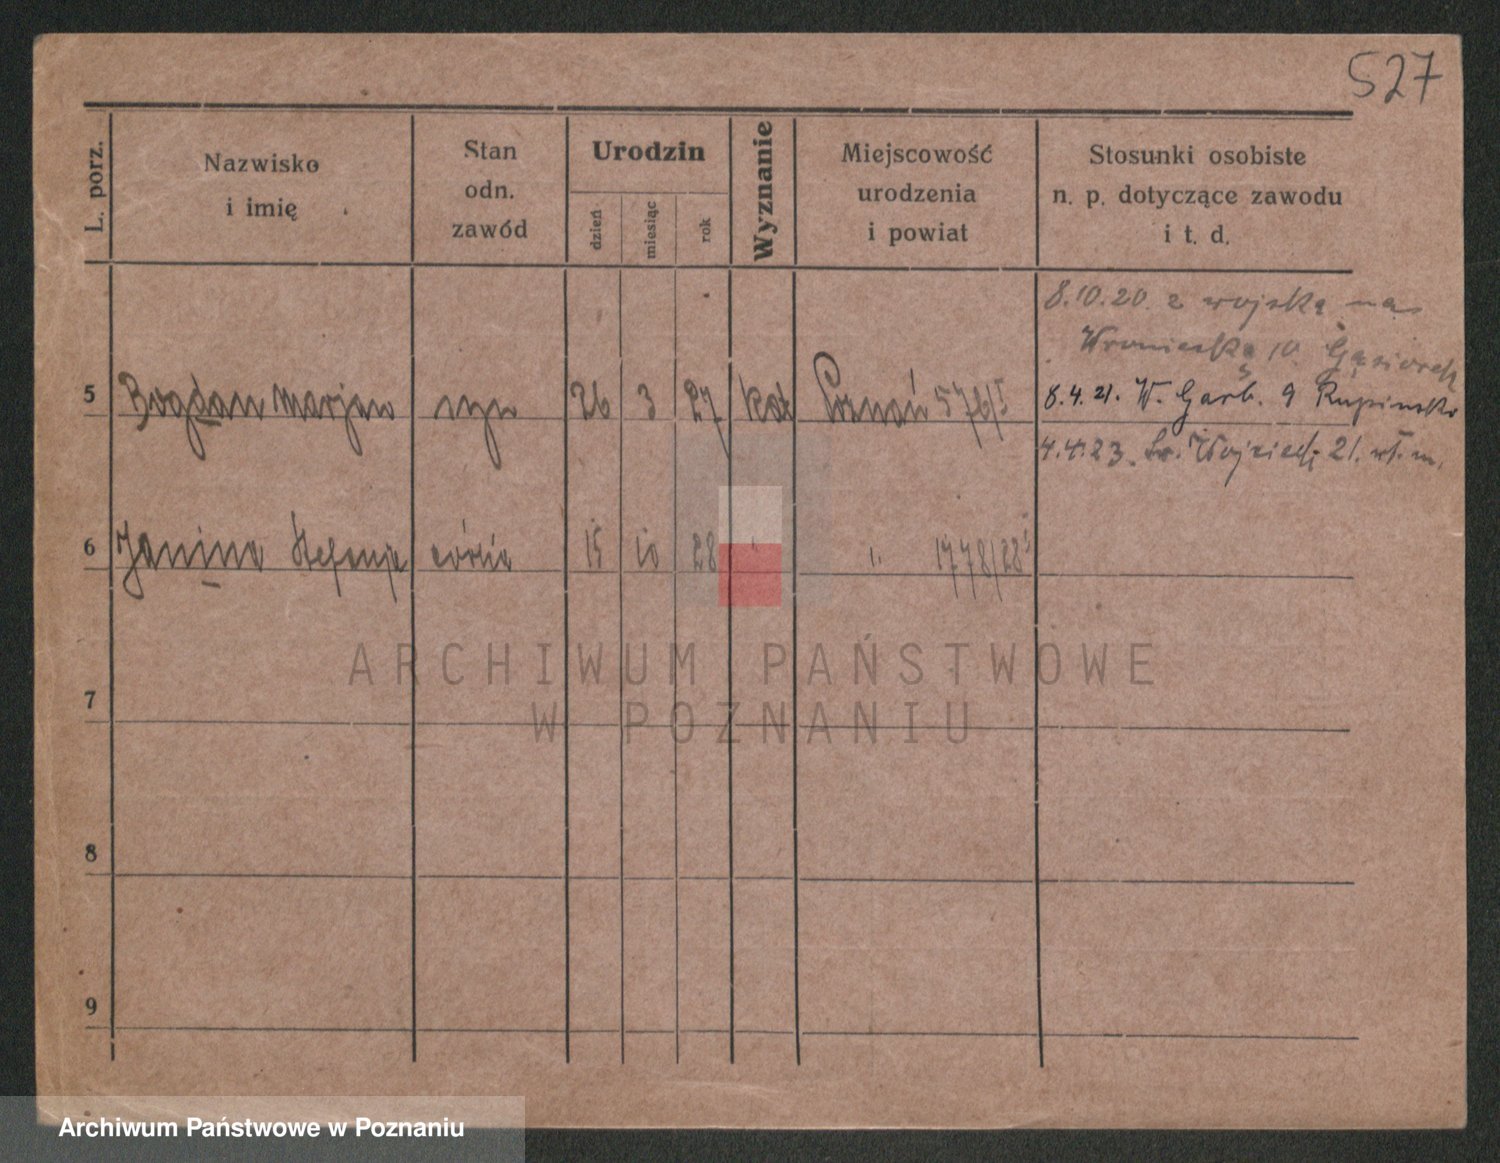 527
L. porz.
Nazwisko
i imię
Stan
odn.
zawód
Urodzin
dzień
miesiąc
rok
Wyznanie
Miejscowość
urodzenia
i powiat
Stosunki osobiste
n. p. dotyczące zawodu
i t. d.
8.10.20. z wojska na
Wroniecka 10 Gąsiorek
5 Bogdan Marjan syn 26 3 27 kat Poznań 576/I 8.4.21. W. Garb. 9 Rupinska
4.4.23. Św. Wojciech 21. wł. m.
6 Janina Stefanja córka 15 10 28 " " 1778/28
7
8
9
ARCHIWUM PAŃSTWOWE
W POZNANIU
Archiwum Państwowe w Poznaniu